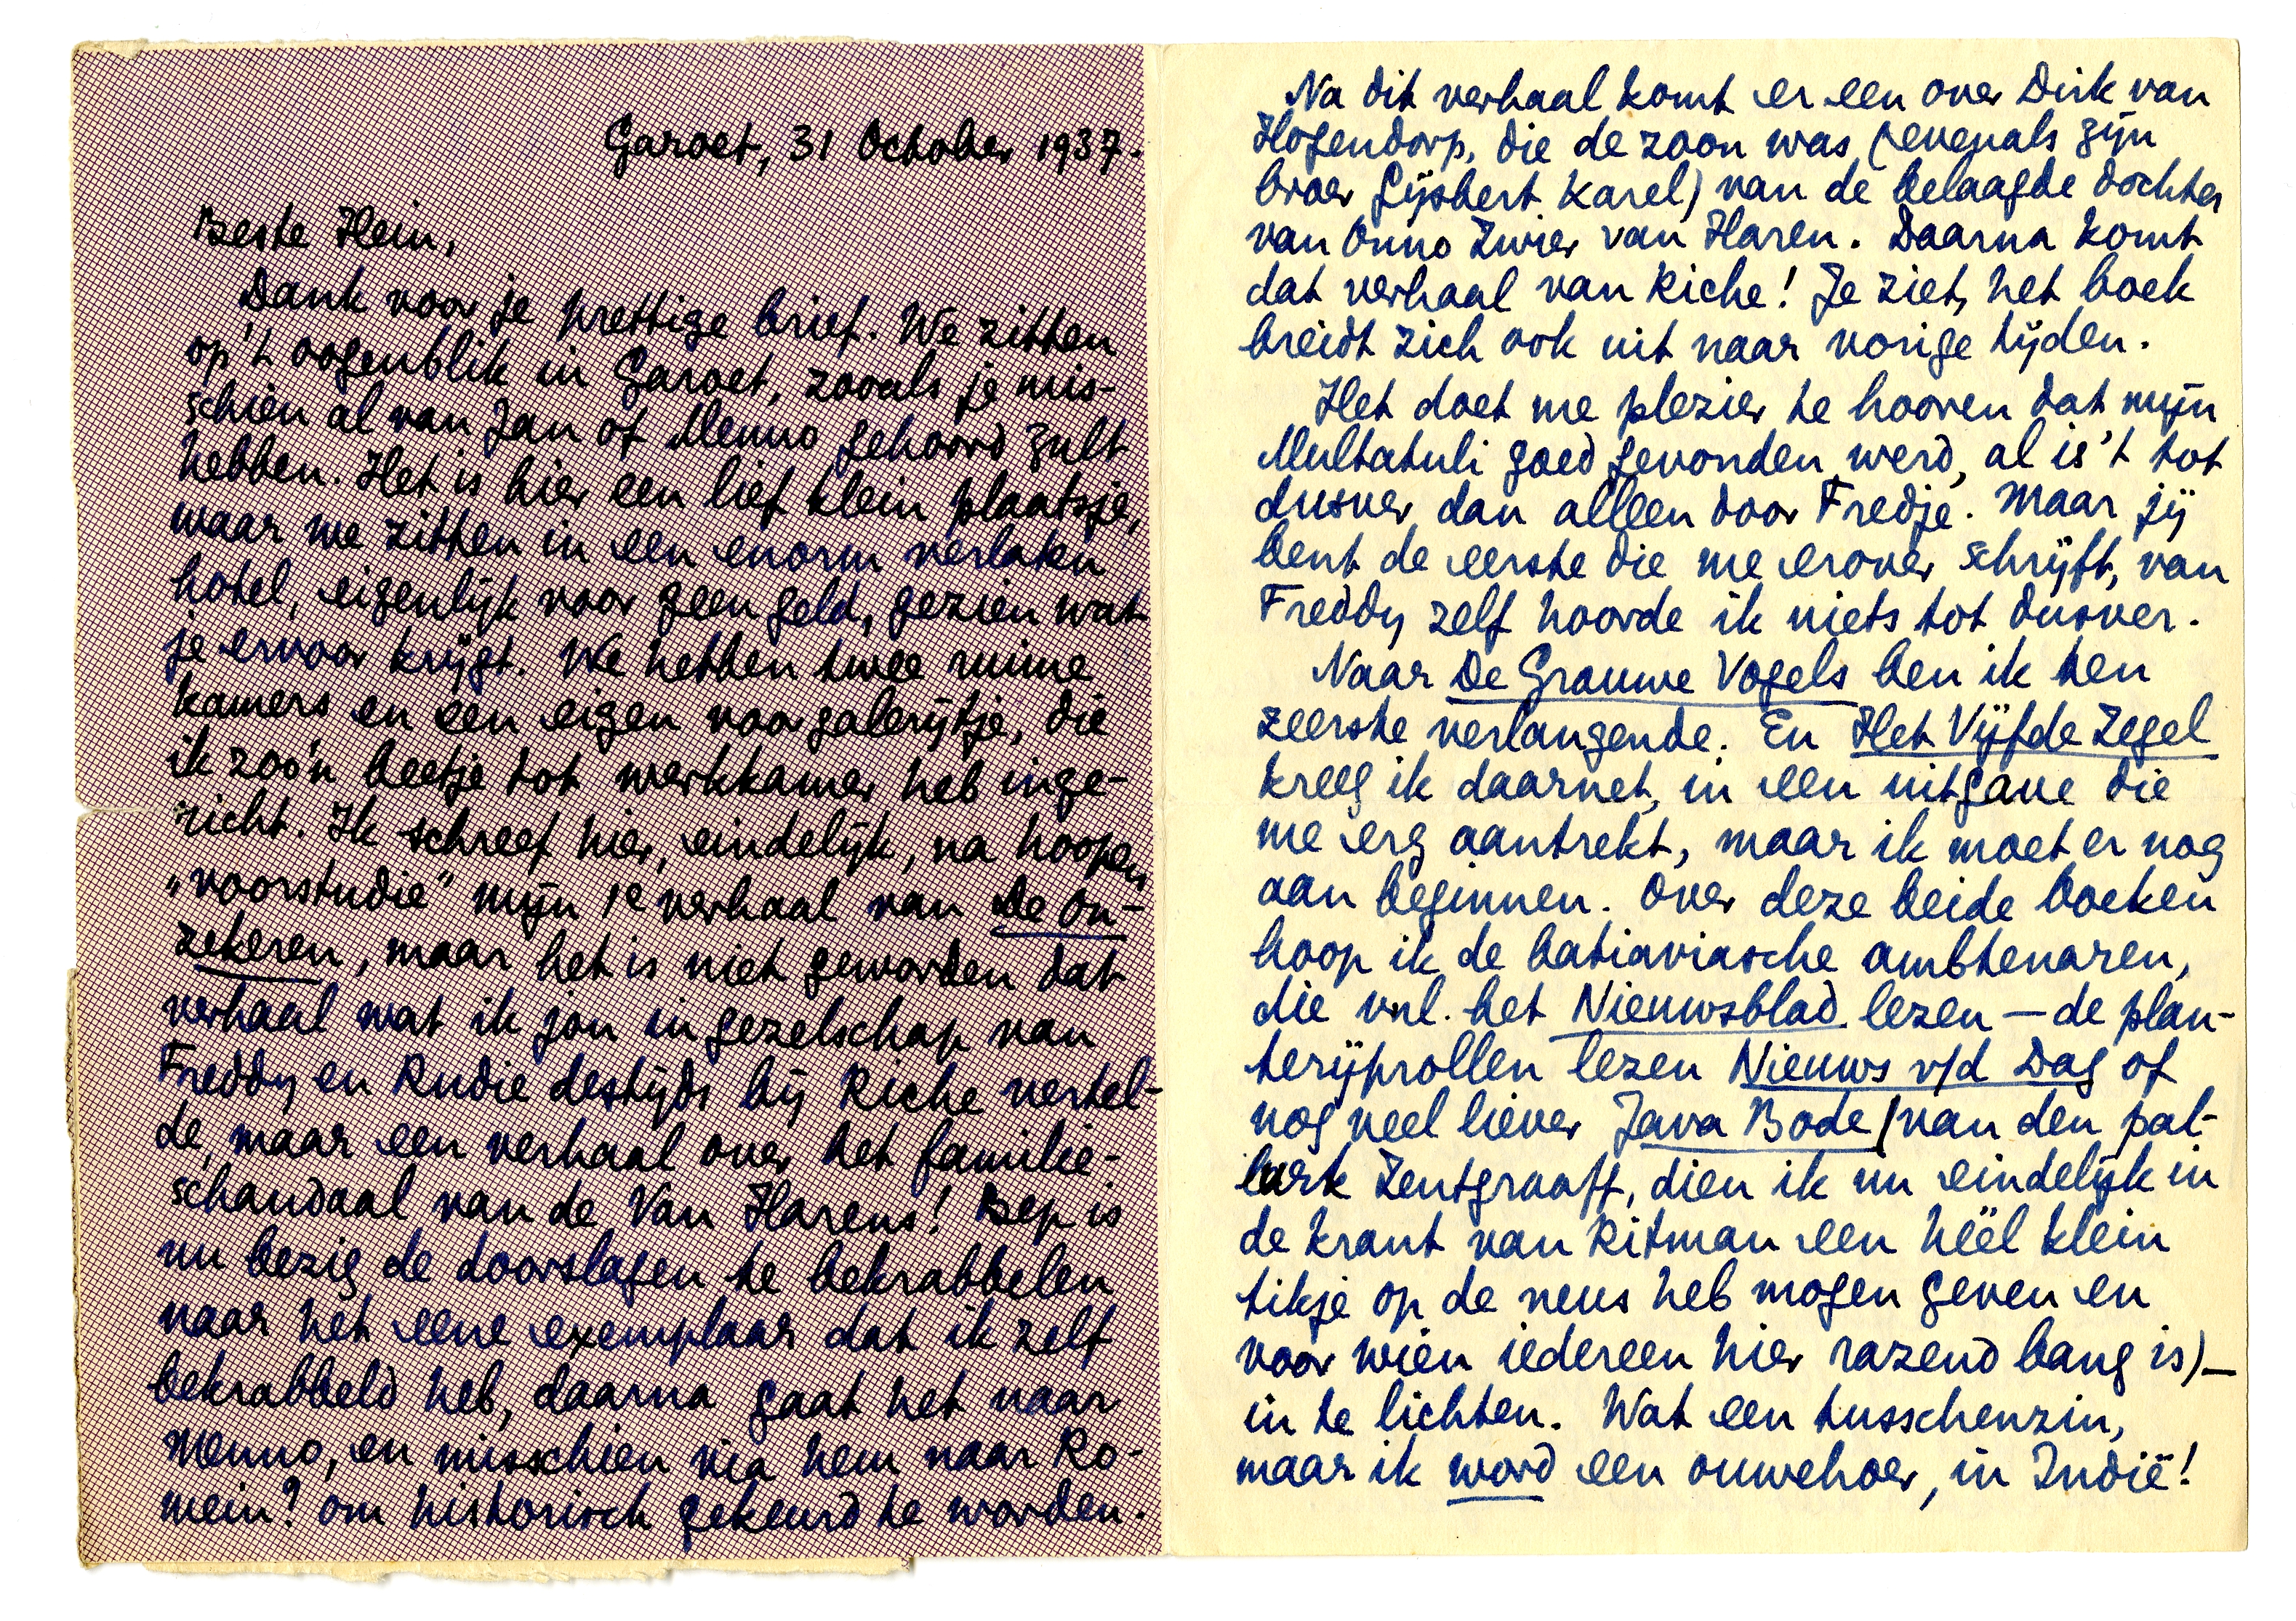 Garoet, 31 October 1937.
Beste Hein,
Dank voor je prettige brief. We zitten
op 't oogenblik in Garoet, zooals je mis-
schien al van Jan of Menno gehoord zult
hebben. Het is hier een lief klein plaatsje,
waar we zitten in een enorm verlaten
hotel, eigenlijk voor geen geld, gezien wat
je ervoor krijgt. We hebben twee ruime
kamers en een eigen voorgalerijtje, die
ik zoo'n beetje tot werkkamer heb inge-
richt. Ik schreef hier, eindelijk, na hoopen
„voorstudie" mijn 1e verhaal van De On-
zekeren, maar het is niet geworden dat
verhaal wat ik jou in gezelschap van
Freddy en Rudie destijds bij Riche vertel-
de, maar een verhaal over het familie-
schandaal van de Van Harens! Bep is
nu bezig de doorslagen te bekrabbelen
naar het eene exemplaar dat ik zelf
bekrabbeld heb, daarna gaat het naar
Menno, en misschien via hem naar Ro-
mein? om historisch gekeurd te worden.
Na dit verhaal komt er een over Dirk van
Hogendorp, die de zoon was (evenals zijn
broer Gijsbert Karel) van de belaagde dochter
van Onno Zwier van Haren. Daarna komt
dat verhaal van Riche! Je ziet, het boek
breidt zich ook uit naar vorige tijden.
Het doet me plezier te hooren dat mijn
Multatuli goed gevonden werd, al is 't tot
dusver dan alleen door Fredje. Maar jij
bent de eerste die me erover schrijft, van
Freddy zelf hoorde ik niets tot dusver.
Naar De Grauwe Vogels ben ik ten
zeerste verlangende. En Het Vijfde Zegel
kreeg ik daarnet, in een uitgave die
me erg aantrekt, maar ik moet er nog
aan beginnen. Over deze beide boeken
hoop ik de bataviasche ambtenaren,
die vnl. het Nieuwsblad lezen — de plan-
terijprollen lezen Nieuws v/d Dag of
nog veel liever Java Bode (van den pat-
lurk Zentgraaff, dien ik nu eindelijk in
de krant van Ritman een héél klein
tikje op de neus heb mogen geven en
voor wien iedereen hier razend bang is) —
in te lichten. Wat een tusschenzin,
maar ik word een ouwehoer, in Indië!